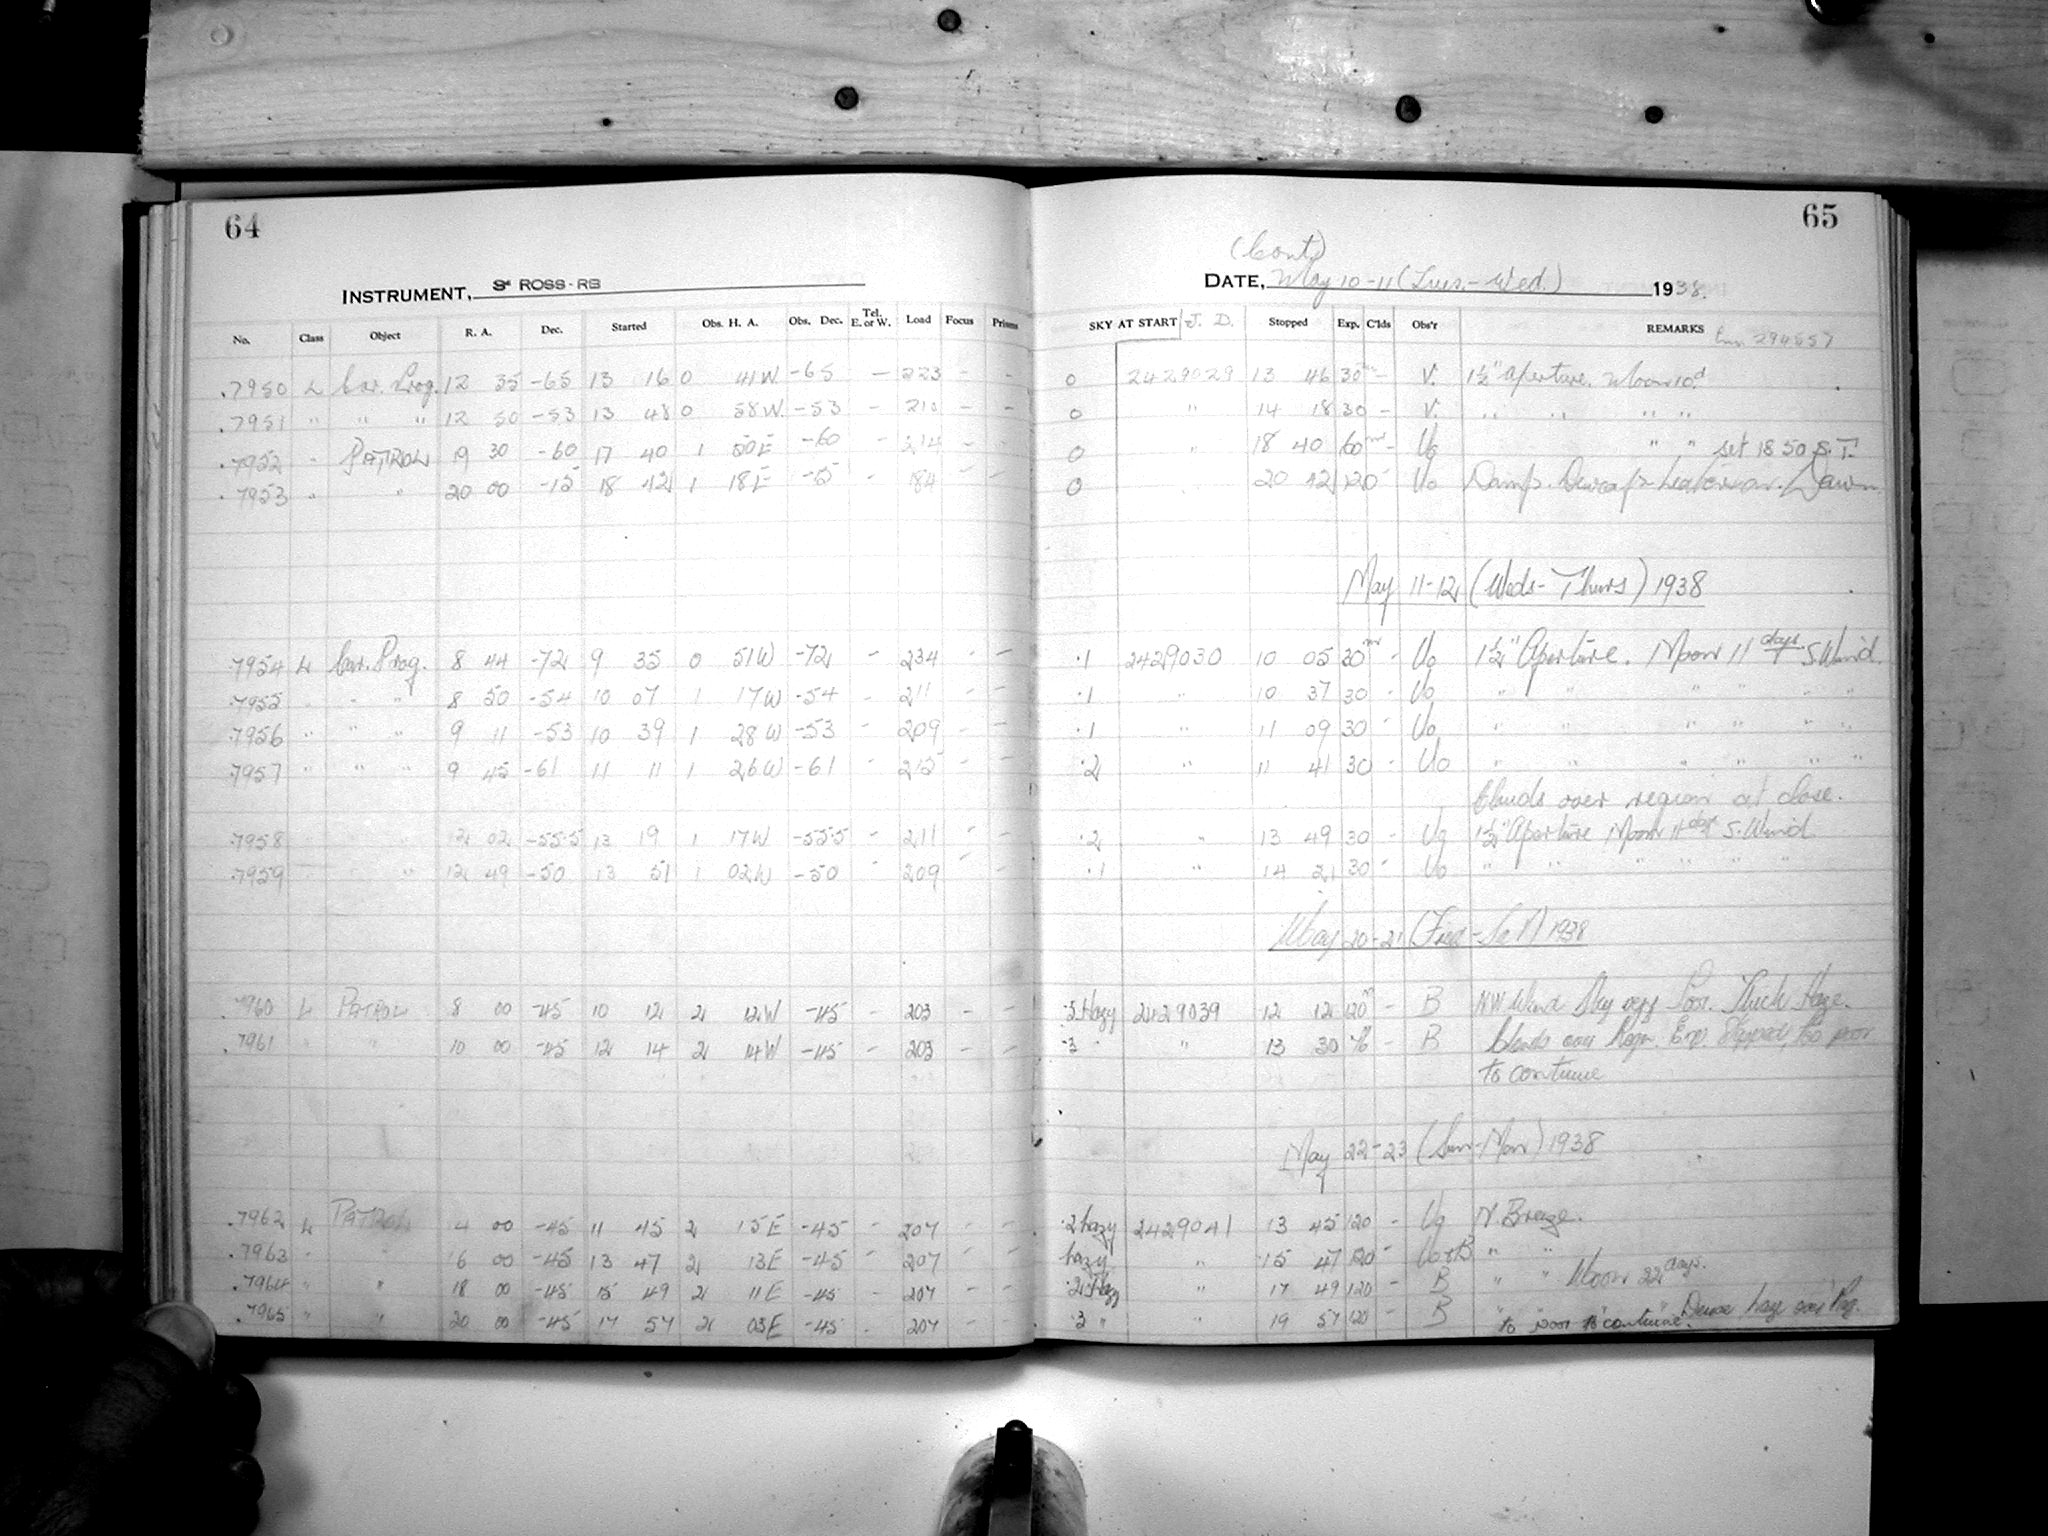 64
65
(Cont)
INSTRUMENT, 3" ROSS-RB
DATE, May 10-11 (Tues.-Wed.) 1938.
No. Class Object R. A. Dec. Started Obs. H. A. Obs. Dec. Tel. E. or W. Load Focus Prisms SKY AT START J. D. Stopped Exp. C'lds Obs'r REMARKS
7950 L Car. Prog. 12 35 -65 13 16 0 41W -65 - 223 - - 0 2429029 13 46 30 - V. 1½" Aperture. Moon 10d
7951 " " " 12 50 -53 13 48 0 58W -53 - 210 - - 0 " 14 18 30 - V. " " " "
7952 " PATROL 19 30 -60 17 40 1 50E -60 - 214 0 " 18 40 60 - " " set 18 50 S.T.
7953 " " 20 00 -15 18 12 1 18E -15 - 184 - - 0 20 12 120 - Damp. Dewcap heater on. Dawn
May 11-12 (Weds-Thurs) 1938
7954 L Car. Prog. 8 44 -72 9 35 0 51W -72 - 234 - - .1 2429030 10 05 30 - 1½" Aperture. Moon 11 days S. Wind.
7955 " " 8 50 -54 10 07 1 17W -54 - 211 - - .1 " 10 37 30 - " " " " " "
7956 " " " 9 11 -53 10 39 1 28W -53 - 209 - - .1 " 11 09 30 - " " " " " "
7957 " " " 9 45 -61 11 11 1 26W -61 - 215 - - .2 " 11 41 30 - " " " " " "
Clouds over region at close.
7958 " " 12 02 -55.5 13 19 1 17W -55.5 - 211 - - .2 " 13 49 30 - 1½" Aperture Moon 11 days S. Wind
7959 " " 12 49 -50 13 51 1 02W -50 - 209 - - .1 " 14 21 30 - " " " " " "
May 20-21 (Fri-Sat) 1938
7960 L PATROL 8 00 -45 10 12 2 12W -45 - 203 - - .3 Hazy 2429039 12 12 120 - B NW Wind Sky Poor. Thick Haze.
7961 " " 10 00 -45 12 14 2 14W -45 - 203 - - .3 " " 13 30 76 - B Clouds over Regn. Exp. Stopped, too poor
to continue
May 22-23 (Sun-Mon) 1938
7962 L PATROL 4 00 -45 11 45 2 15E -45 - 207 - - .2 hazy 2429041 13 45 120 - N Breeze.
7963 " " 6 00 -45 13 47 2 13E -45 - 207 - - hazy " 15 47 120 - " "
7964 " " 18 00 -45 15 49 2 11E -45 - 207 - - .2 Hazy " 17 49 120 - B " " Moon 22 days.
7965 " " 20 00 -45 17 57 2 03E -45 - 207 - - .3 " " 19 57 120 - B " " Dense haze over Reg.
to poor to continue.